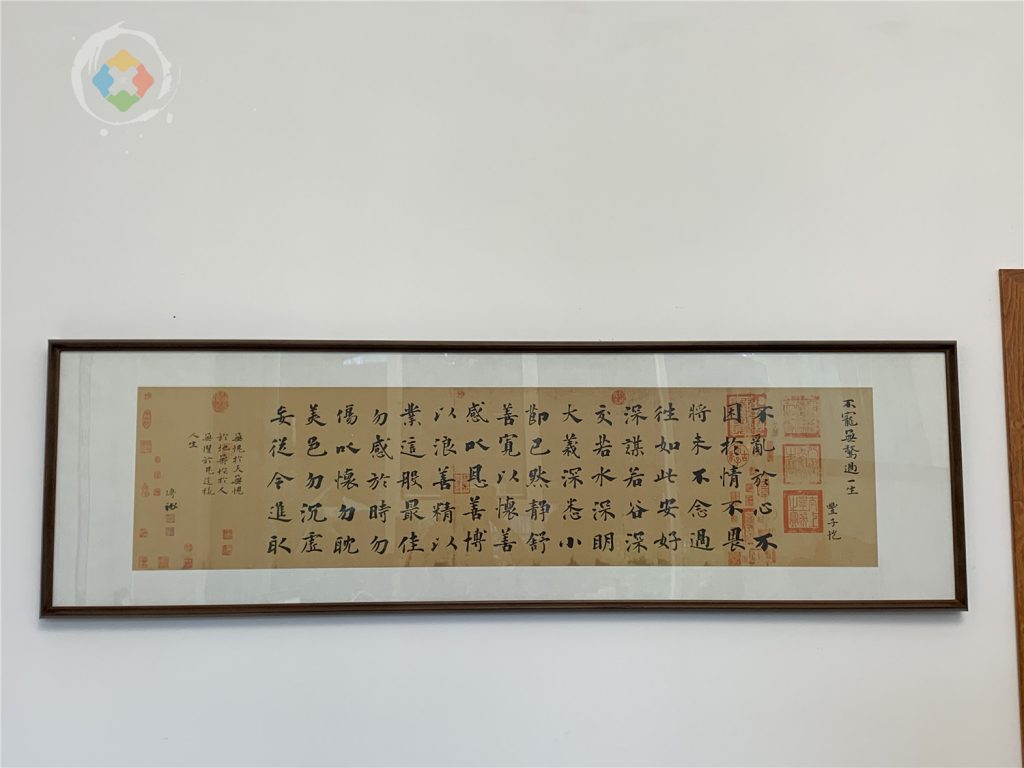 不寵無驚過一生
豐子愷
不亂於心不
困於情不畏
將未不念過
往如此安好
深謀若谷深
交若水深明
大義深悉小
節已然靜舒
善寬以懷善
感以恩善博
以浪善精以
業這般最佳
勿感於時勿
傷以懷勿耽
美色勿沉虛
妄從今進取
無愧於天無愧
於地無怍於人
無懼於鬼這樣
人生